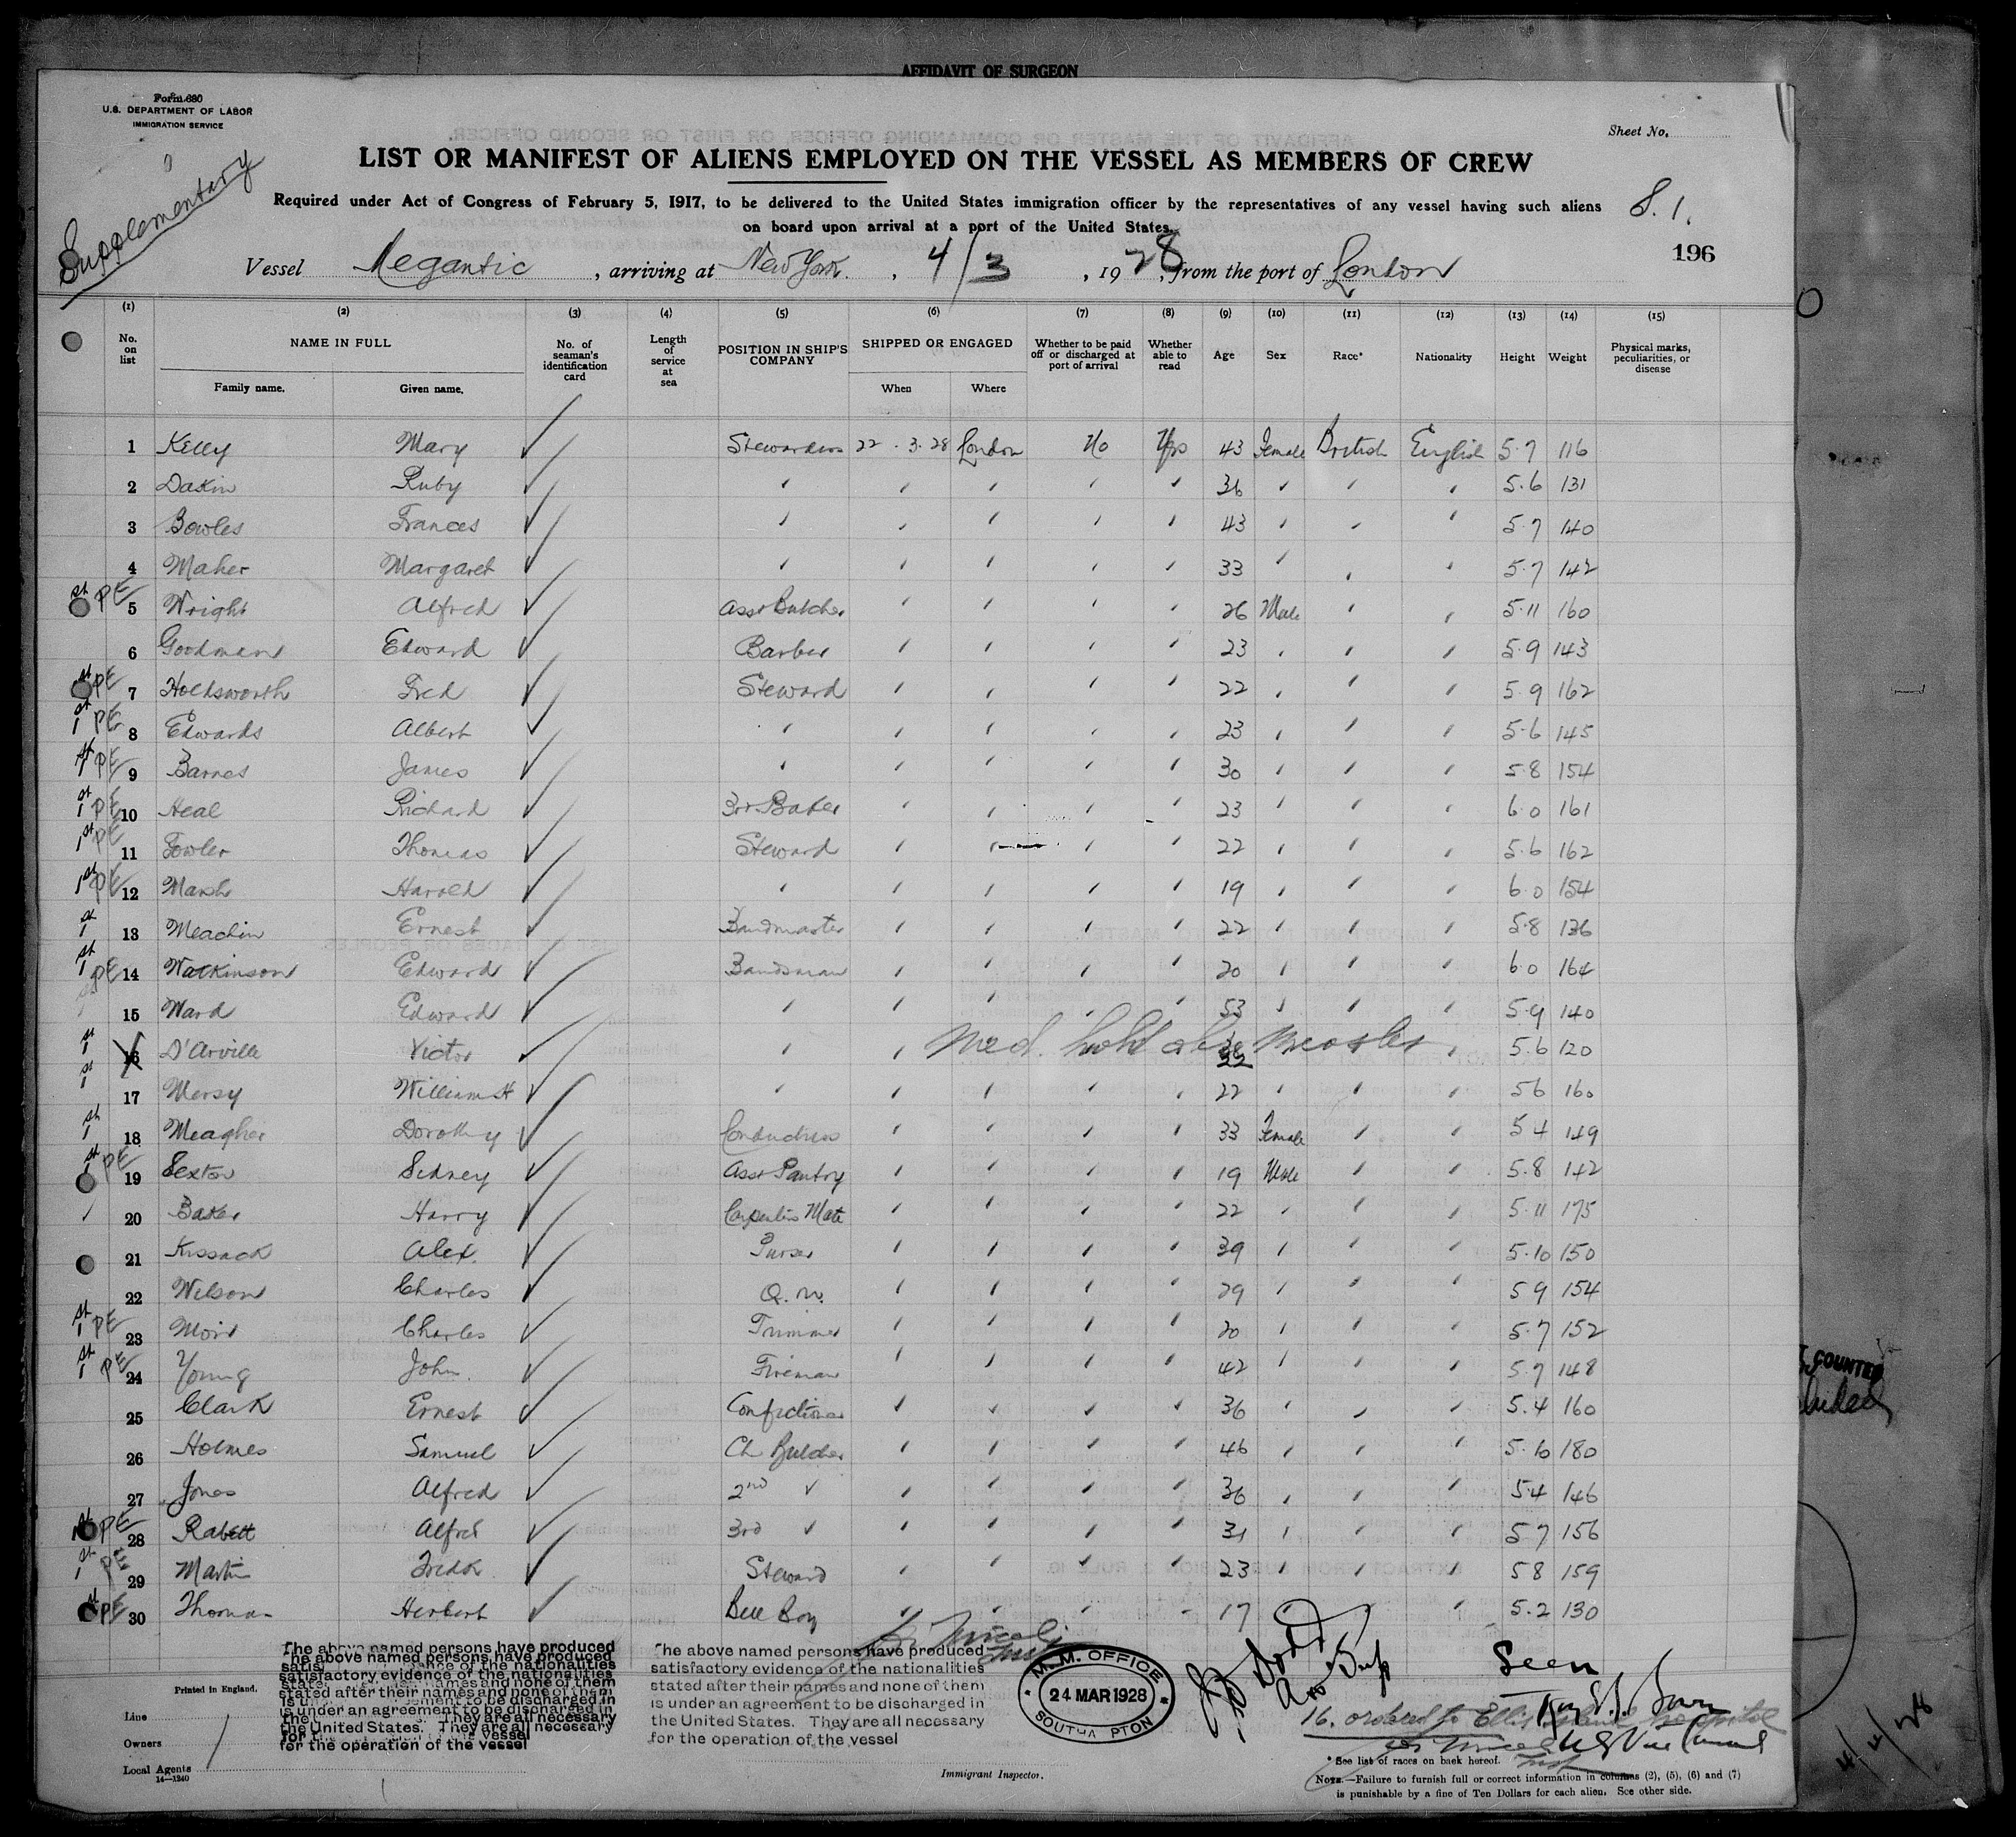 AFFIDAVIT OF SURGEON
Form 680
U.S. DEPARTMENT OF LABOR
IMMIGRATION SERVICE
Sheet No.
Supplementary
LIST OR MANIFEST OF ALIENS EMPLOYED ON THE VESSEL AS MEMBERS OF CREW
Required under Act of Congress of February 5, 1917, to be delivered to the United States immigration officer by the representatives of any vessel having such aliens
on board upon arrival at a port of the United States.
S. 1.
196
Vessel Megantic, arriving at New York, 4/3, 1928, from the port of London
(1) (2) (3) (4) (5) (6) (7) (8) (9) (10) (11) (12) (13) (14) (15)
No. on list NAME IN FULL Family name. Given name. No. of seaman's identification card Length of service at sea POSITION IN SHIP'S COMPANY SHIPPED OR ENGAGED When Where Whether to be paid off or discharged at port of arrival Whether able to read Age Sex Race* Nationality Height Weight Physical marks, peculiarities, or disease
1 Kelly Mary ✓ Stewardess 22.3.28 London No Yes 43 Female British English 5.7 116
2 Dakin Ruby ✓ " " " " " 36 " " " 5.6 131
3 Bowles Frances ✓ " " " " " 43 " " " 5.7 140
4 Maher Margaret ✓ " " " " " 33 " " " 5.7 142
st PE 5 Wright Alfred ✓ Asst Butcher " " " " 26 Male " " 5.11 160
6 Goodman Edward ✓ Barber " " " " 23 " " " 5.9 143
st PE 7 Holdsworth Fred ✓ Steward " " " " 22 " " " 5.9 162
1st PE 8 Edwards Albert ✓ " " " " " 23 " " " 5.6 145
1st PE 9 Barnes James ✓ " " " " " 30 " " " 5.8 154
1st PE 10 Heal Richard ✓ 3rd Baker " " " " 23 " " " 6.0 161
1st PE 11 Fowler Thomas ✓ Steward " " " " 22 " " " 5.6 162
1st PE 12 Marsh Harold ✓ " " " " " 19 " " " 6.0 154
1st 13 Meachin Ernest ✓ Bandmaster " " " " 22 " " " 5.8 136
1st PE 14 Watkinson Edward ✓ Bandsman " " " " 20 " " " 6.0 164
15 Ward Edward ✓ " " " " " 53 " " " 5.9 140
1st 16 D'Arville Victor ✓ " " Med. hold measles 22 " 5.6 120
1st 17 Mersy William H ✓ " " " " " 22 " " " 5.6 160
1st 18 Meagher Dorothy ✓ Conductress " " " " 33 Female " " 5.4 149
1st PE 19 Sexton Sidney ✓ Asst Pantry " " " " 19 Male " " 5.8 142
20 Baker Harry ✓ Carpenters Mate " " " " 22 " " " 5.11 175
21 Kissack Alex. ✓ Purser " " " " 39 " " " 5.10 150
22 Wilson Charles ✓ Q.M. " " " " 29 " " " 5.9 154
1st PE 23 Moir Charles ✓ Trimmer " " " " 20 " " " 5.7 152
1st PE 24 Young John ✓ Fireman " " " " 42 " " " 5.7 148
25 Clark Ernest ✓ Confectioner " " " " 36 " " " 5.4 160
26 Holmes Samuel ✓ Ch Butcher " " " " 46 " " " 5.10 180
27 Jones Alfred ✓ 2nd " " " " " 36 " " " 5.4 146
1st PE 28 Rabett Alfred ✓ 3rd " " " " " 31 " " " 5.7 156
1st PE 29 Martin Fredk ✓ Steward " " " " 23 " " " 5.8 159
st PE 30 Thomas Herbert ✓ Bell Boy " " " " 17 " " " 5.2 130
The above named persons have produced
satisfactory evidence of the nationalities
stated after their names and none of them
is under an agreement to be discharged in
the United States. They are all necessary
for the operation of the vessel
The above named persons have produced
satisfactory evidence of the nationalities
stated after their names and none of them
is under an agreement to be discharged in
the United States. They are all necessary
for the operation of the vessel
M.M. OFFICE
24 MAR 1928
SOUTHAMPTON
Seen
16. ordered to Ellis Island hospital
US Vice Consul
4/4/28
Printed in England.
Line
Owners
Local Agents
14—1240
Immigrant Inspector.
* See list of races on back hereof.
NOTE.—Failure to furnish full or correct information in columns (2), (5), (6) and (7)
is punishable by a fine of Ten Dollars for each alien. See other side.
COUNTED